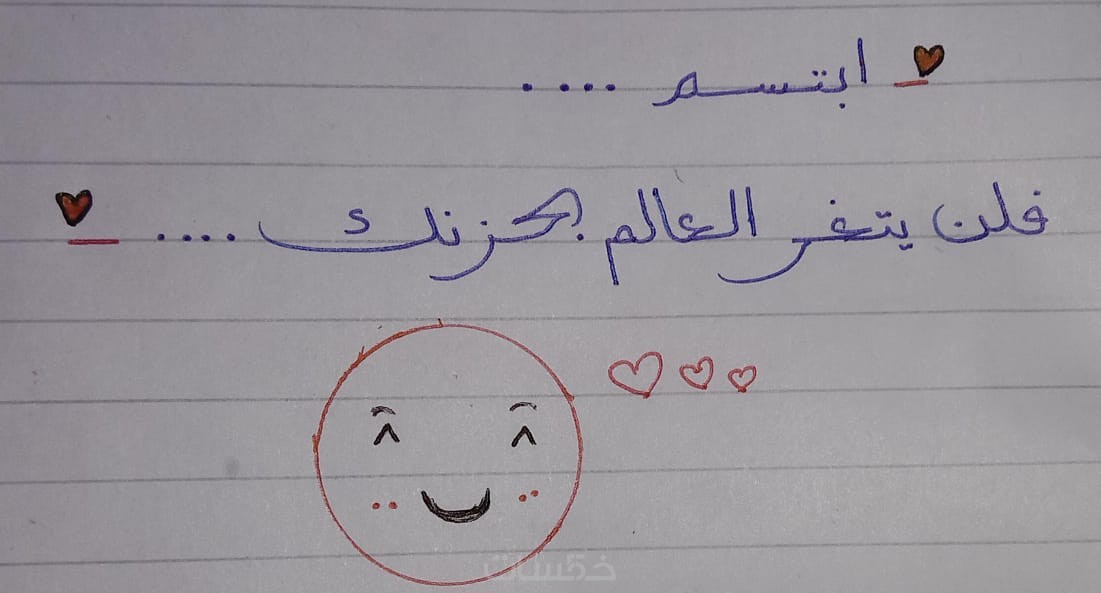 ابتسم ....
فلن يتغر العالم بحزنك ....
خمسات